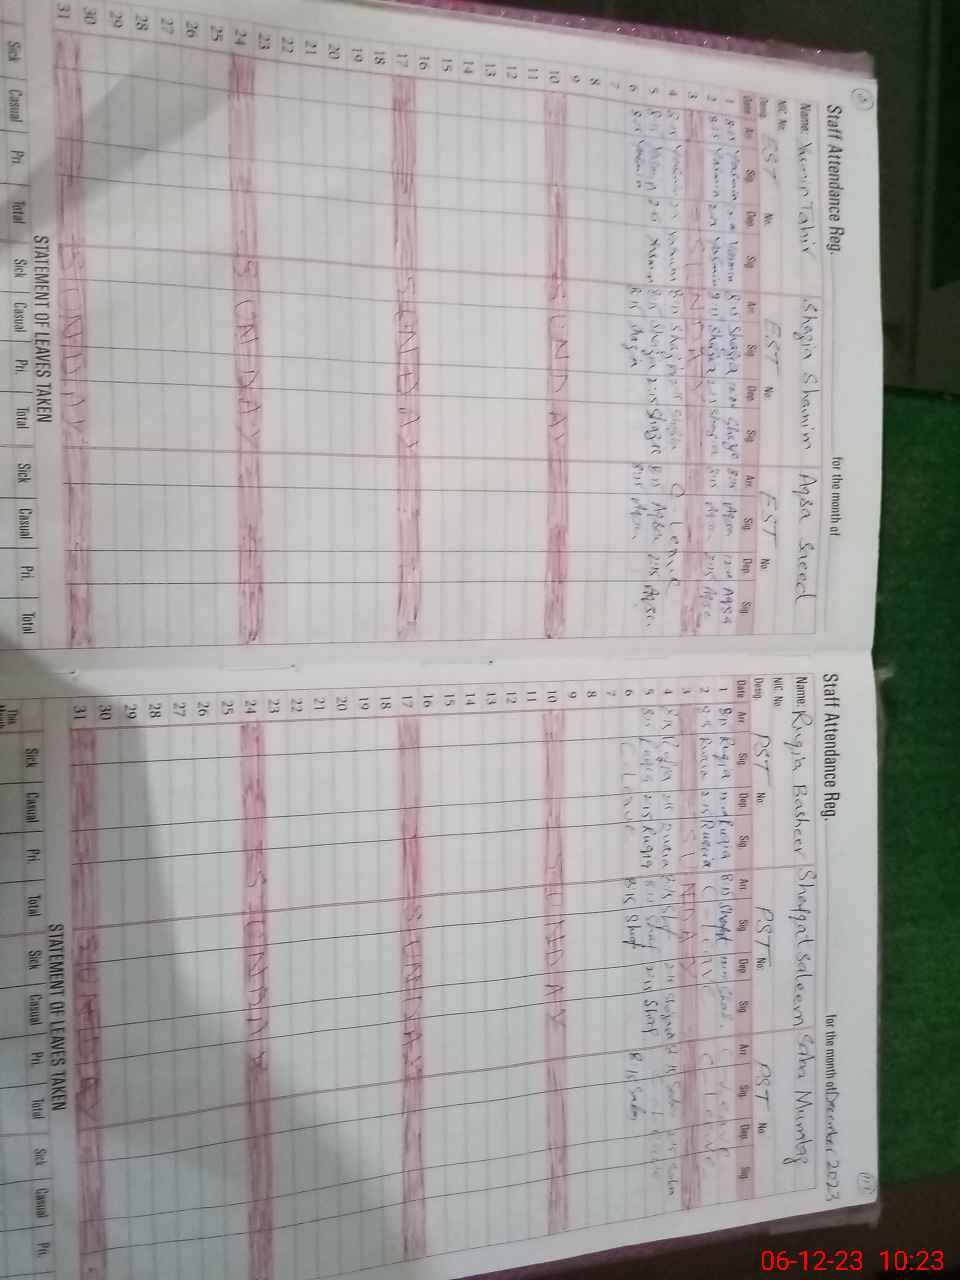 Staff Attendance Reg. for the month of
Name: Yasmin Tahir Shazia Shamim Aqsa Saeed
NIC. No.
Desig. EST No. EST No. EST No.
Date Arr. Sig. Dep. Sig. Arr. Sig. Dep. Sig. Arr. Sig. Dep. Sig.
1 8:15 Yasmin Yasmin 8:15 Shazia Aqsa Aqsa
2 8:15 Yasmin Yasmin 8:15 Shazia 2:15 Shazia 8:15 Aqsa 2:15 Aqsa
3 SUNDAY
4 8:15 Yasmin Yasmin 8:15 Shazia 2:15 Shazia C. Leave
5 8:15 Yasmin 2:15 Yasmin 8:15 Shazia 2:15 Shazia 8:15 Aqsa 2:15 Aqsa
6 8:15 Yasmin 8:15 Shazia 8:15 Aqsa
7
8
9
10 SUNDAY
11
12
13
14
15
16
17 SUNDAY
18
19
20
21
22
23
24 SUNDAY
25
26
27
28
29
30
31 SUNDAY
STATEMENT OF LEAVES TAKEN
Sick Casual Pri. Total Sick Casual Pri. Total Sick Casual Pri. Total
Staff Attendance Reg. for the month of December 2023
Name: Ruqia Basheer Shafqat Saleem Saba Mumtaz
NIC. No.
Desig. PST No. PST No. PST No.
Date Arr. Sig. Dep. Sig. Arr. Sig. Dep. Sig. Arr. Sig. Dep. Sig.
1 8:15 Ruqia Ruqia 8:15 Leave
2 8:15 Ruqia 2:15 Ruqia C-Leave C Leave
3 SUNDAY
4 8:15 Ruqia 2:15 Ruqia 8:15 Saba Saba
5 8:15 Ruqia 2:15 Ruqia 8:15 Shaf 2:15 Shaf
6 C. Leave 8:15 Shaf 8:15 Saba
7
8
9
10 SUNDAY
11
12
13
14
15
16
17 SUNDAY
18
19
20
21
22
23
24 SUNDAY
25
26
27
28
29
30
31 SUNDAY
STATEMENT OF LEAVES TAKEN
Sick Casual Pri. Total Sick Casual Pri. Total Sick Casual Pri.
06-12-23 10:23